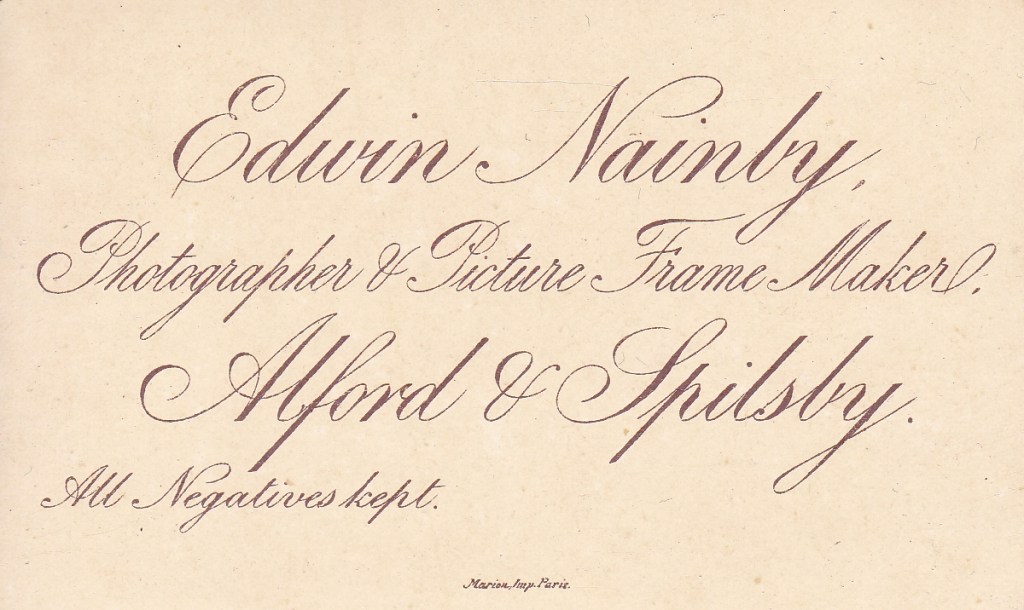 Edwin Nainby,
Photographer & Picture Frame Maker.
Alford & Spilsby.
All Negatives kept.
Marion, Imp. Paris.